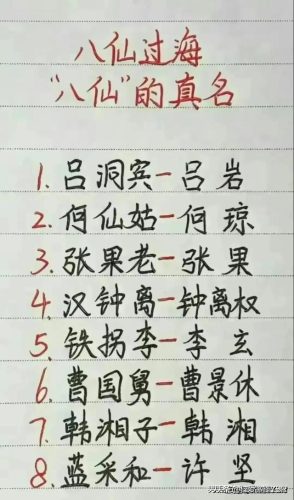 八仙过海
“八仙”的真名
1.吕洞宾-吕岩
2.何仙姑-何琼
3.张果老-张果
4.汉钟离-钟离权
5.铁拐李-李玄
6.曹国舅-曹景休
7.韩湘子-韩湘
8.蓝采和-许坚